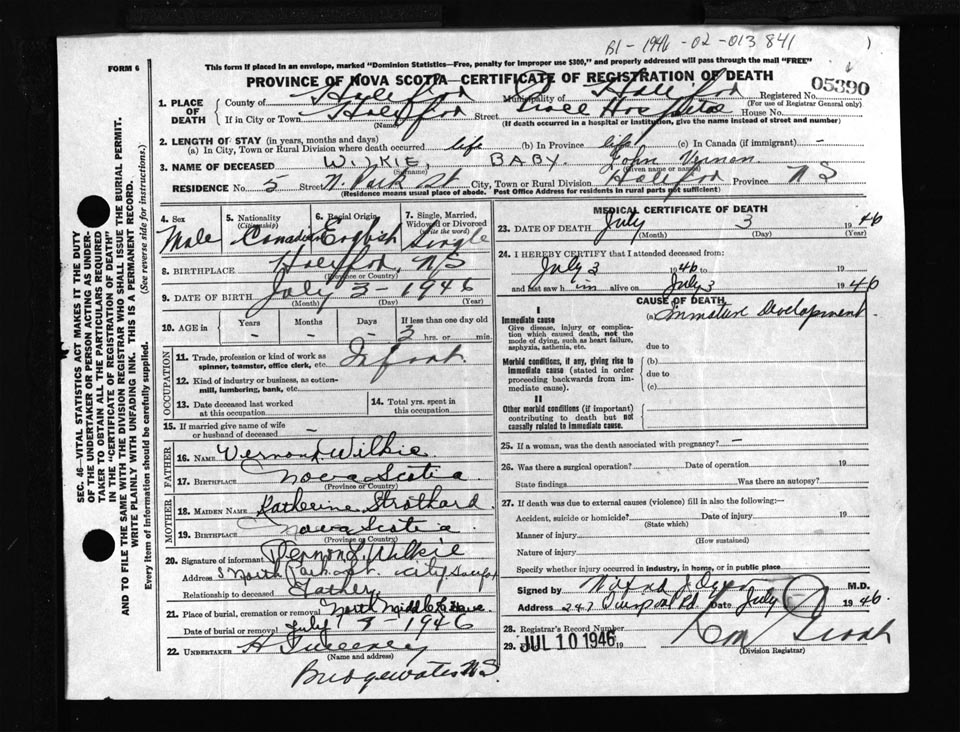 B1-1946-02-013841
FORM 6
This form if placed in an envelope, marked "Dominion Statistics—Free, penalty for improper use $300," and properly addressed will pass through the mail "FREE"
PROVINCE OF NOVA SCOTIA—CERTIFICATE OF REGISTRATION OF DEATH
05390
1. PLACE OF DEATH
County of Halifax Municipality of Halifax Registered No.
(For use of Registrar General only)
If in City or Town Halifax Street Grace House No.
(Name) (If death occurred in a hospital or institution, give the name instead of street and number)
2. LENGTH OF STAY (in years, months and days)
(a) In City, Town or Rural Division where death occurred life (b) In Province life (c) In Canada (if immigrant) -
3. NAME OF DECEASED WILKIE, BABY. John Vernon
(Surname) (Given name or names)
RESIDENCE No. 5 Street N. Park St City, Town or Rural Division Halifax Province NS
(Residence means usual place of abode. Post Office Address for rural parts not sufficient)
4. Sex Male
5. Nationality (Citizenship) Canadian
6. Racial Origin English
7. Single, Married, Widowed or Divorced (write the word) Single
8. BIRTHPLACE Halifax, NS
(Province or Country)
9. DATE OF BIRTH July 3 - 1946
(Month) (Day) (Year)
10. AGE in Years Months Days If less than one day old
- - - 3 hrs. or min.
OCCUPATION
11. Trade, profession or kind of work as spinner, teamster, office clerk, etc. Infant
12. Kind of industry or business, as cotton-mill, lumbering, bank, etc.
13. Date deceased last worked at this occupation
14. Total yrs. spent in this occupation
15. If married give name of wife or husband of deceased -
FATHER
16. NAME Vernon Wilkie
17. BIRTHPLACE Nova Scotia
(Province or Country)
MOTHER
18. MAIDEN NAME Katherine Strothard
19. BIRTHPLACE Nova Scotia
(Province or Country)
20. Signature of informant Vernon Wilkie
Address 5 North Park St. City Halifax
Relationship to deceased Father
21. Place of burial, cremation or removal North Middle
Date of burial or removal July 3 - 1946
22. UNDERTAKER H Sweeney
(Name and address)
Bridgewater NS
MEDICAL CERTIFICATE OF DEATH
23. DATE OF DEATH July 3 1946
(Month) (Day) (Year)
24. I HEREBY CERTIFY that I attended deceased from
July 3 1946 to 19
and last saw h im alive on July 3 1946
CAUSE OF DEATH
I
Immediate cause (a) Immature Development.
Give disease, injury or complication which caused death, not the mode of dying, such as heart failure, asphyxia, asthenia, etc.
due to
Morbid conditions, if any, giving rise to immediate cause (stated in order proceeding backwards from immediate cause).
(b)
due to
(c)
II
Other morbid conditions (if important) contributing to death but not causally related to immediate cause.
25. If a woman, was the death associated with pregnancy? -
26. Was there a surgical operation? Date of operation 19
State findings Was there an autopsy?
27. If death was due to external causes (violence) fill in also the following:—
Accident, suicide or homicide? Date of injury 19
(State which)
Manner of injury
(How sustained)
Nature of injury
Specify whether injury occurred in industry, in home, or in public place
Signed by M.D.
Address 247 Date July 1946
28. Registrar's Record Number
29. JUL 10 1946 19
(Division Registrar)
SEC. 46—VITAL STATISTICS ACT MAKES IT THE DUTY
OF THE UNDERTAKER OR PERSON ACTING AS UNDER-
TAKER TO OBTAIN ALL THE PARTICULARS REQUIRED
IN THE "CERTIFICATE OF REGISTRATION OF DEATH"
AND TO FILE THE SAME WITH THE DIVISION REGISTRAR WHO SHALL ISSUE THE BURIAL PERMIT.
WRITE PLAINLY WITH UNFADING INK. THIS IS A PERMANENT RECORD.
Every item of information should be carefully supplied. (See reverse side for instructions.)